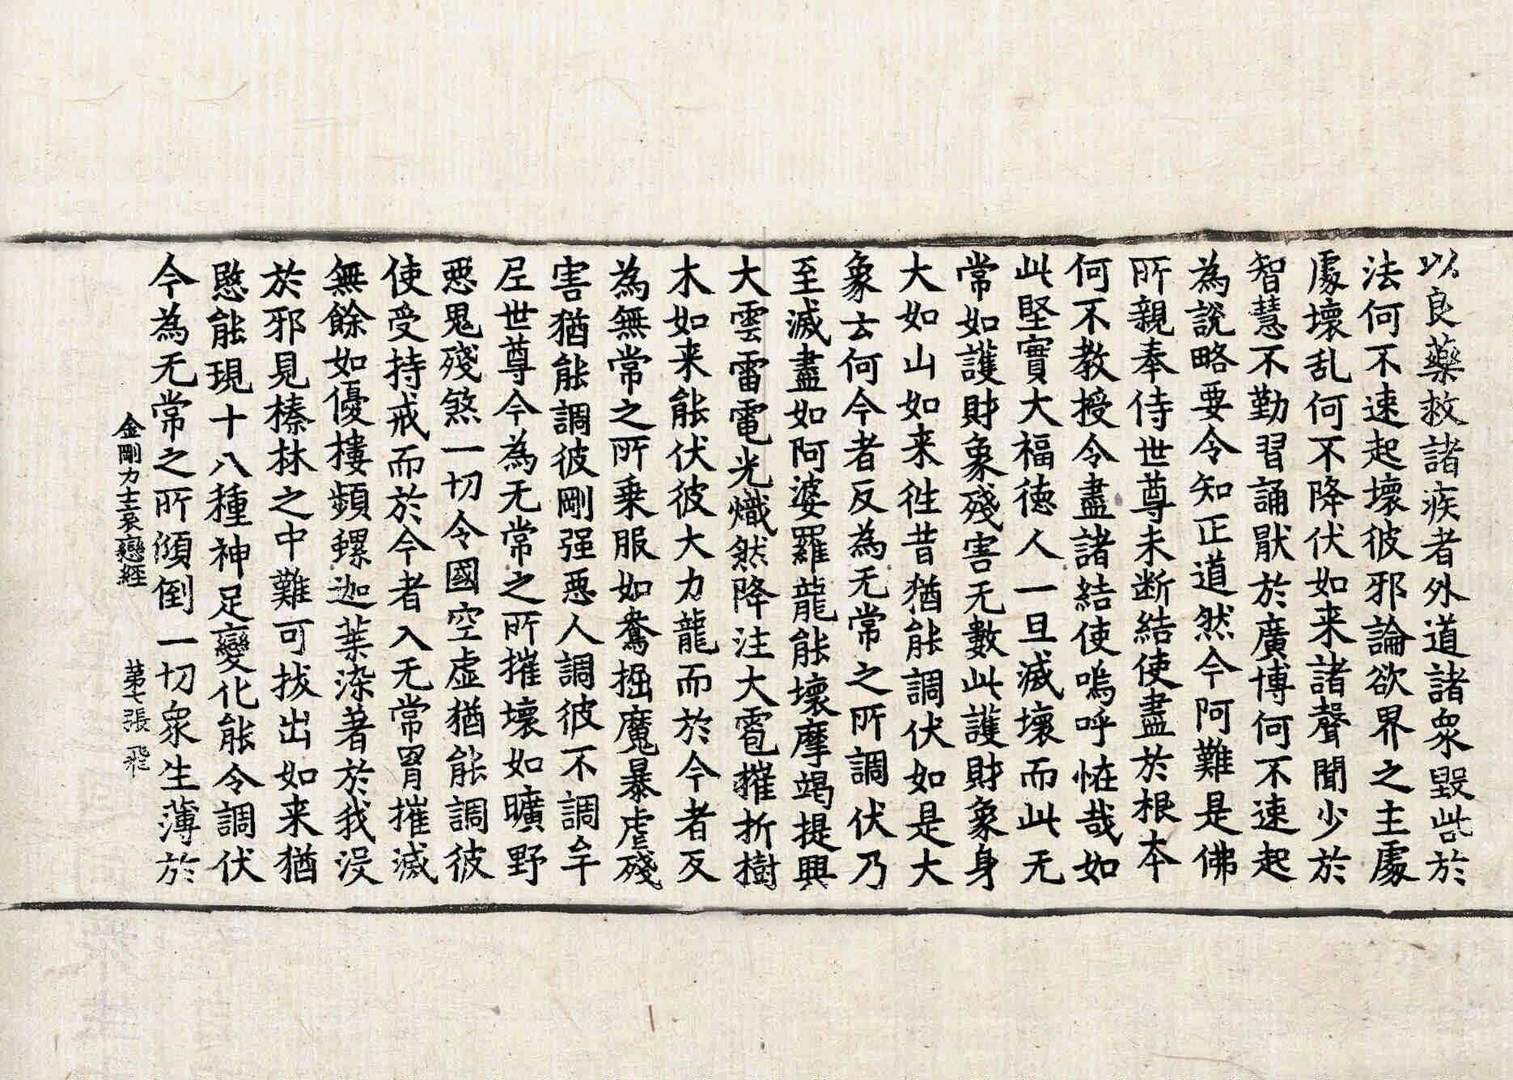 以良藥救諸疾者外道諸衆毀呰於
法何不速起壞彼邪論欲界之主處
處壞乱何不降伏如来諸聲聞少於
智慧不勤習誦猒於廣博何不速起
為說略要令知正道然今阿難是佛
所親奉侍世尊未断結使盡於根本
何不教授令盡諸結使嗚呼恠哉如
此堅實大福德人一旦滅壞而此无
常如護財象殘害无數此護財象身
大如山如来徃昔猶能調伏如是大
象云何今者反為无常之所調伏乃
至滅盡如阿婆羅龍能壞摩竭提興
大雲雷電光熾然降注大雹摧折樹
木如来能伏彼大力龍而於今者反
為無常之所乗服如鴦掘魔暴虐殘
害猶能調彼剛强惡人調彼不調牟
尼世尊今為无常之所摧壞如曠野
惡鬼殘煞一切令國空虛猶能調彼
使受持戒而於今者入无常胃摧滅
無餘如優樓頻螺迦葉染著於我没
於邪見榛林之中難可拔出如来猶
愍能現十八種神足變化能令調伏
今為无常之所傾倒一切衆生薄於
金剛力士哀戀經 第七張 飛